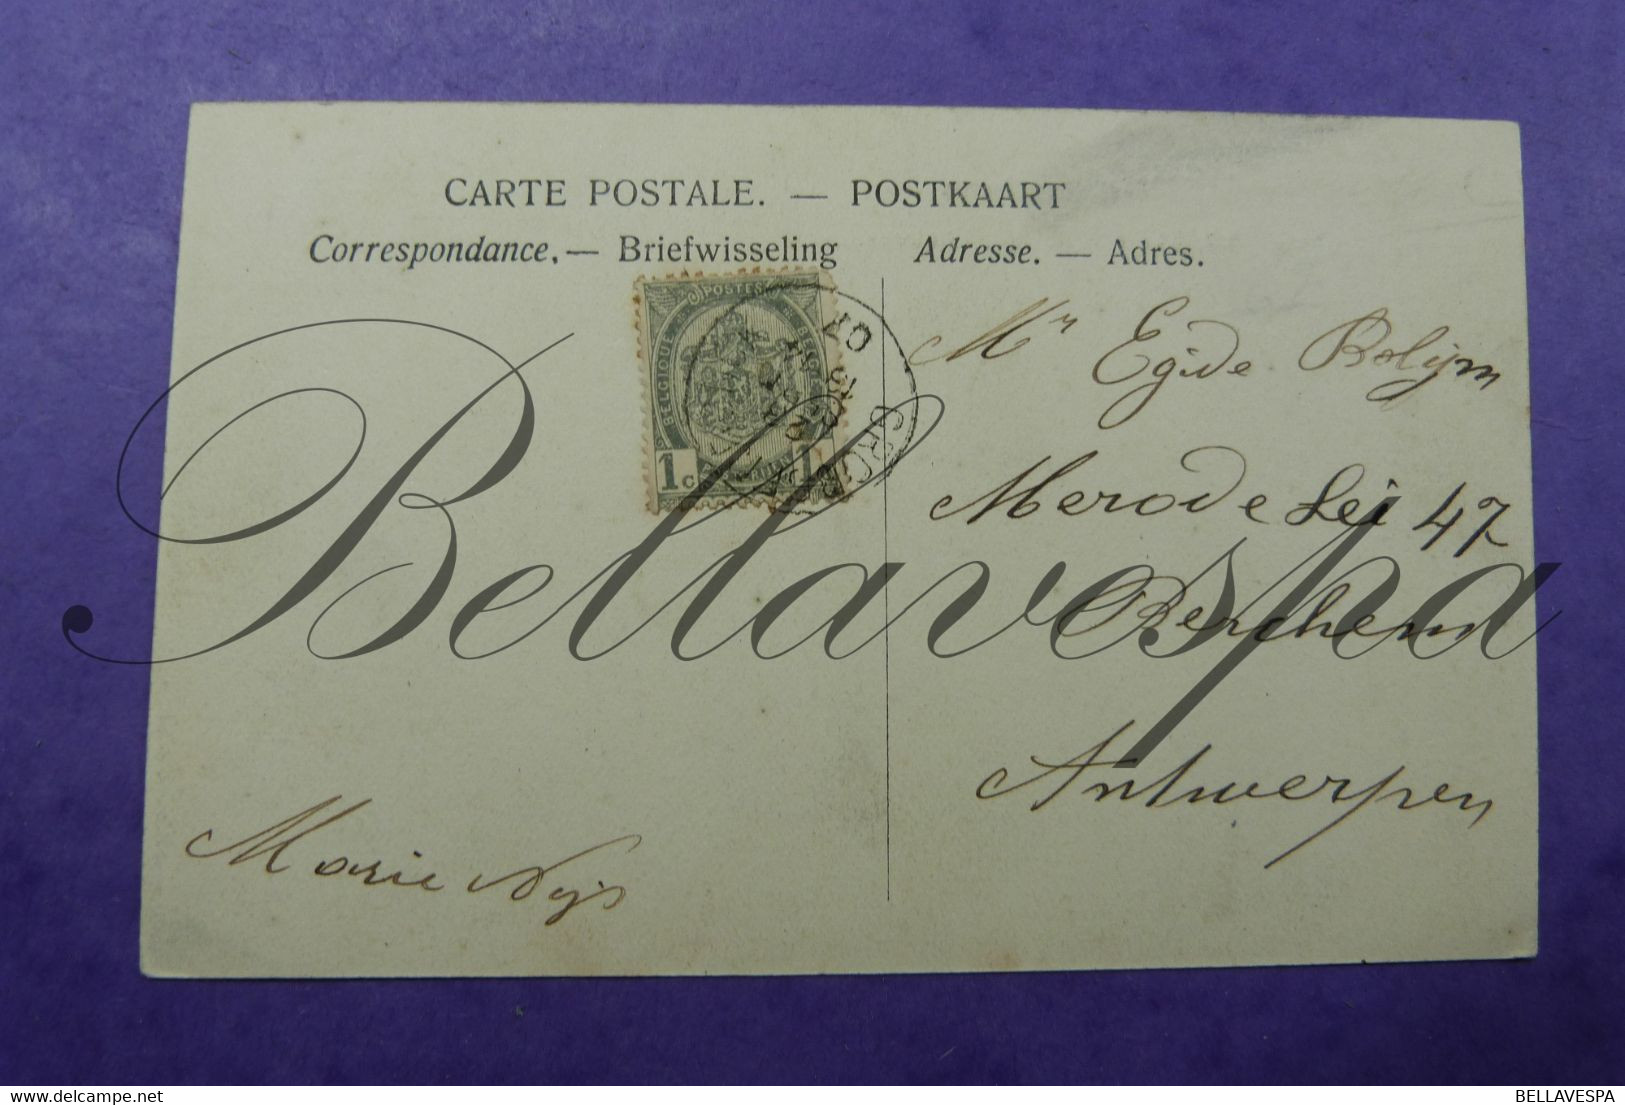 CARTE POSTALE. — POSTKAART
Correspondance. — Briefwisseling
Adresse. — Adres.
POSTES
BELGIQUE
1c
1
Mr Egide Bolijn
Merode Lei 47
Berchem
Antwerpen
Marie Nijs
Bellavespa
delcampe.net
BELLAVESPA